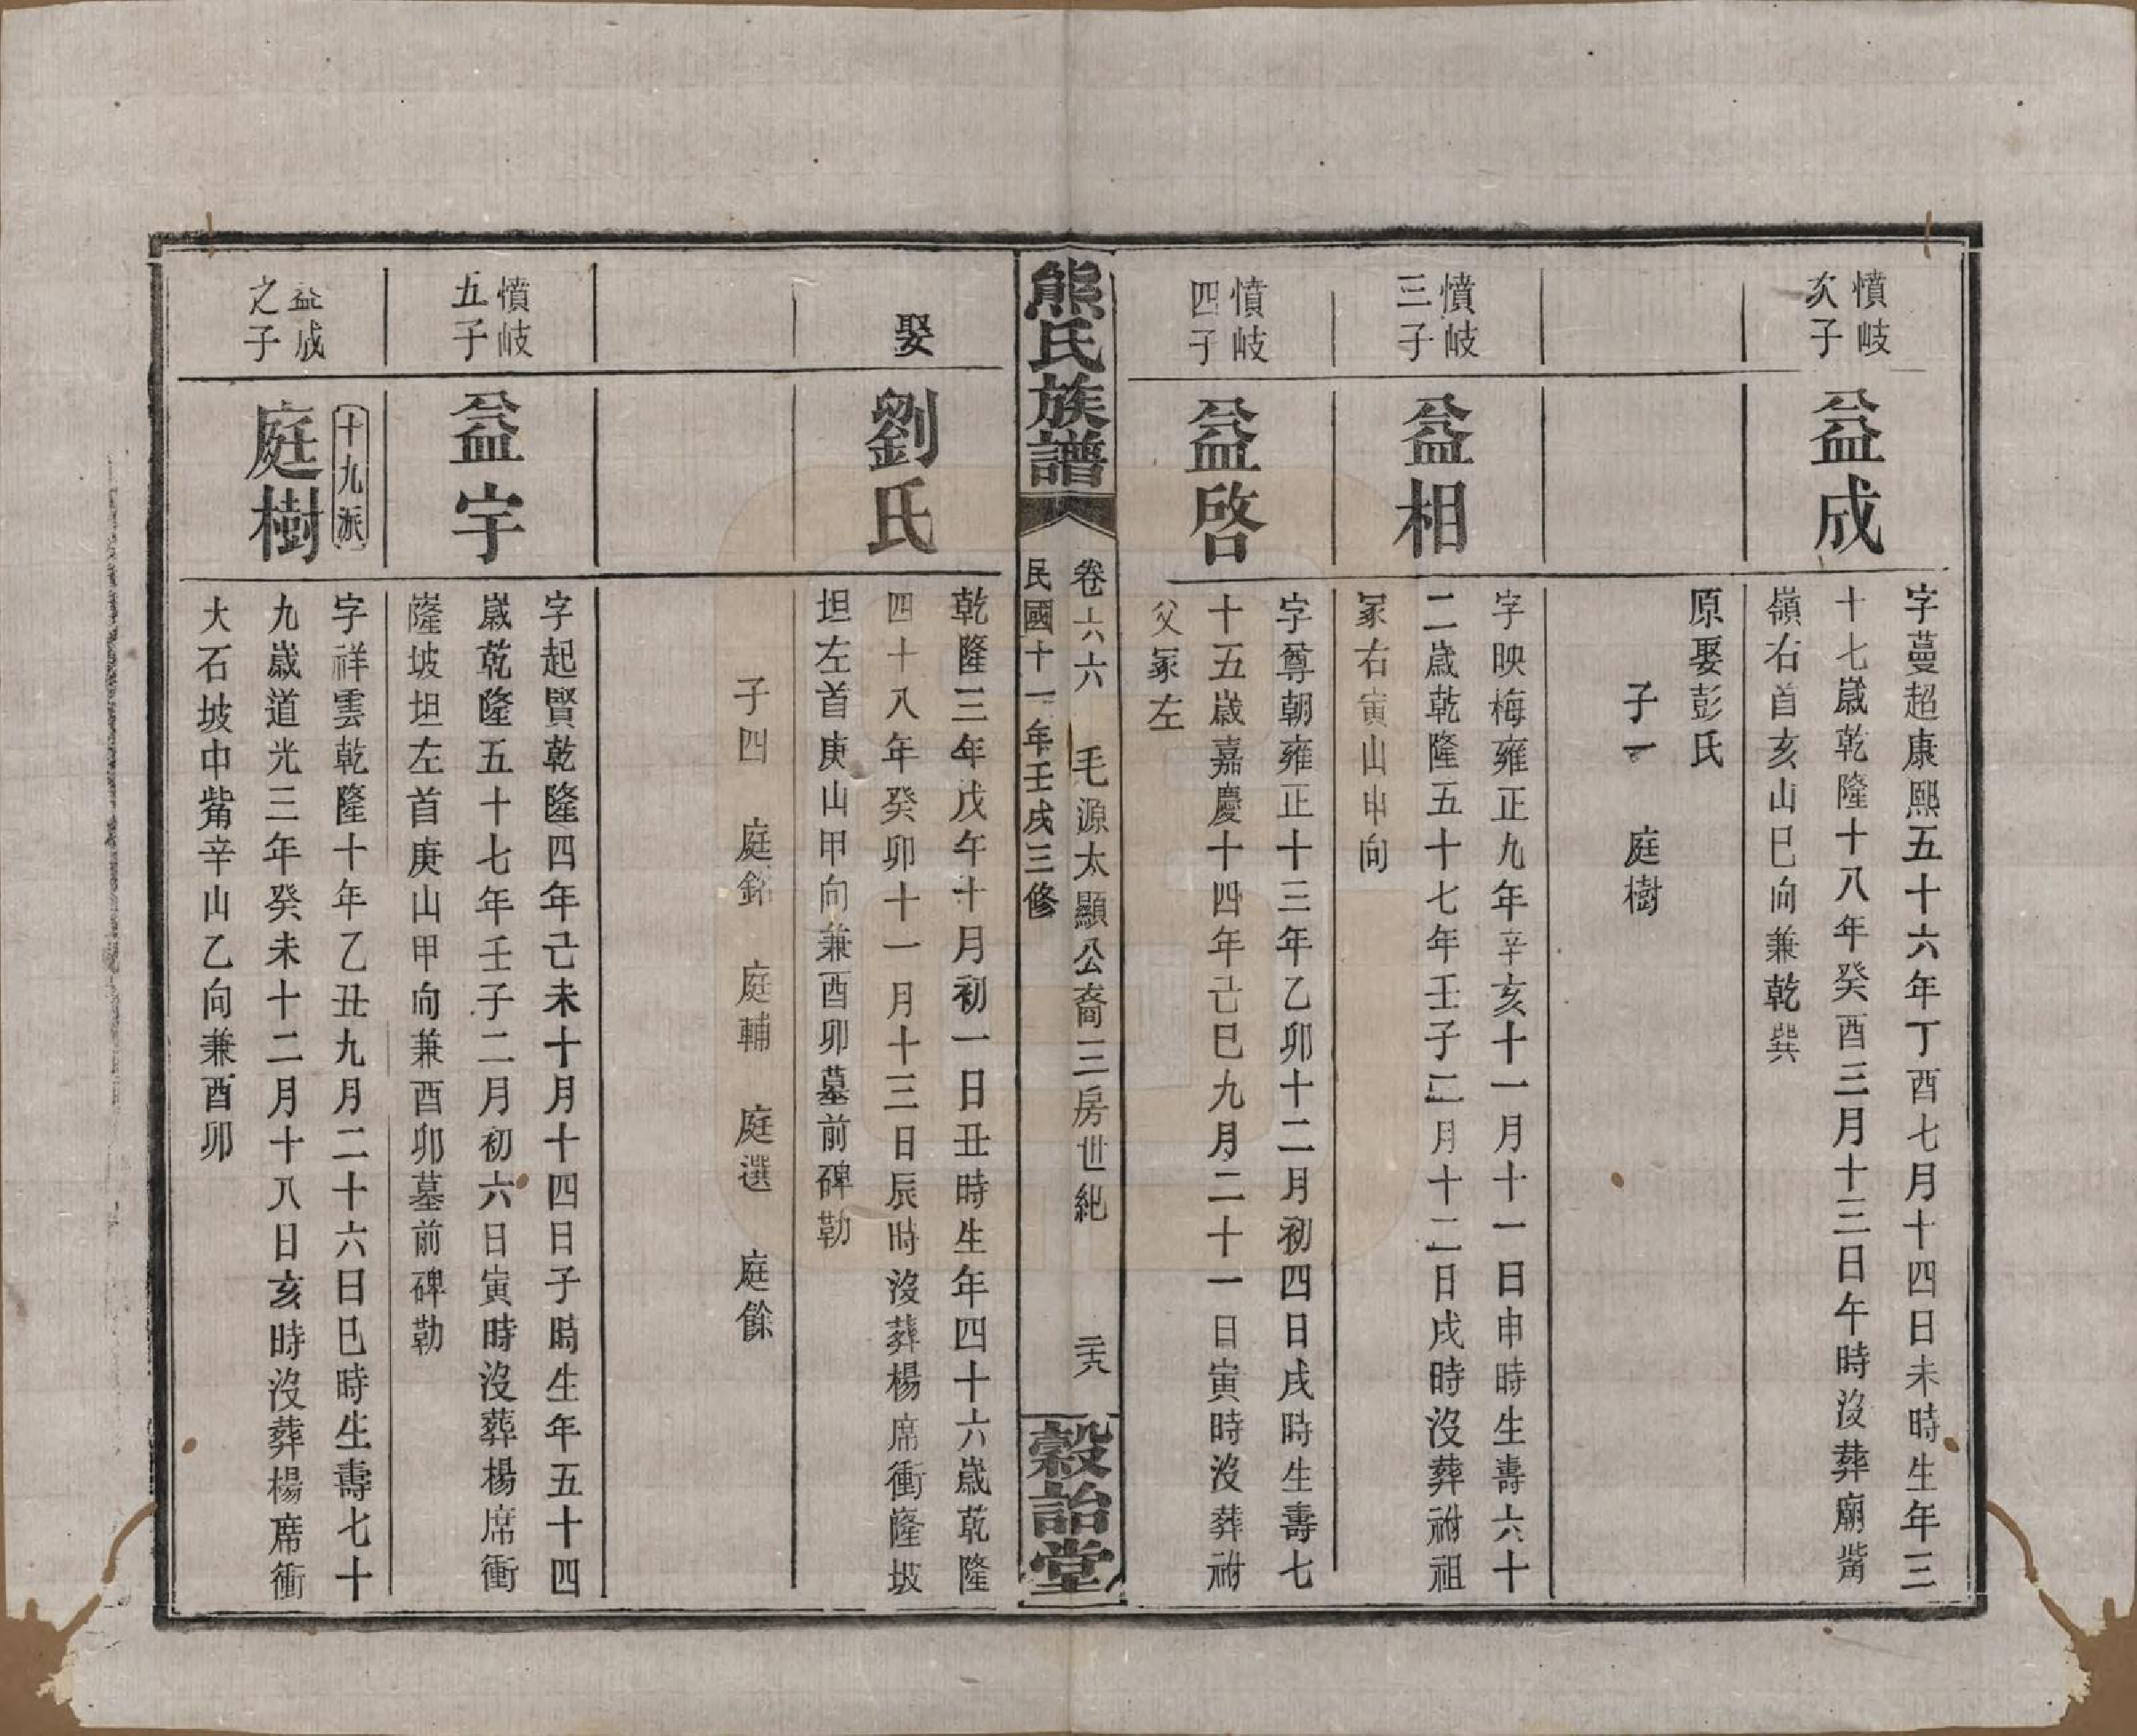 憤岐
次子
益成
字蔓超康熙五十六年丁酉七月十四日未時生年三
十七歲乾隆十八年癸酉三月十三日午時沒葬廟觜
嶺右首亥山巳向兼乾巽
原娶彭氏
子一 庭樹
憤岐
三子
益相
字映梅雍正九年辛亥十一月十一日申時生壽六十
二歲乾隆五十七年壬子二月十二日戌時沒葬祔祖
冢右寅山申向
憤岐
四子
益啓
字尊朝雍正十三年乙卯十二月初四日戌時生壽七
十五歲嘉慶十四年己巳九月二十一日寅時沒葬祔
父冢左
熊氏族譜
卷六六 毛源太顯公裔三房世紀 二十九
民國十一年壬戌三修
穀詒堂
娶
劉氏
乾隆三年戊午十月初一日丑時生年四十六歲乾隆
四十八年癸卯十一月十三日辰時沒葬楊席衝隆坡
坦左首庚山甲向兼酉卯墓前碑勒
子四 庭銘 庭輔 庭選 庭餘
憤岐
五子
益宇
字起賢乾隆四年己未十月十四日子時生年五十四
歲乾隆五十七年壬子二月初六日寅時沒葬楊席衝
隆坡坦左首庚山甲向兼酉卯墓前碑勒
益成
之子
十九派
庭樹
字祥雲乾隆十年乙丑九月二十六日巳時生壽七十
九歲道光三年癸未十二月十八日亥時沒葬楊席衝
大石坡中觜辛山乙向兼酉卯